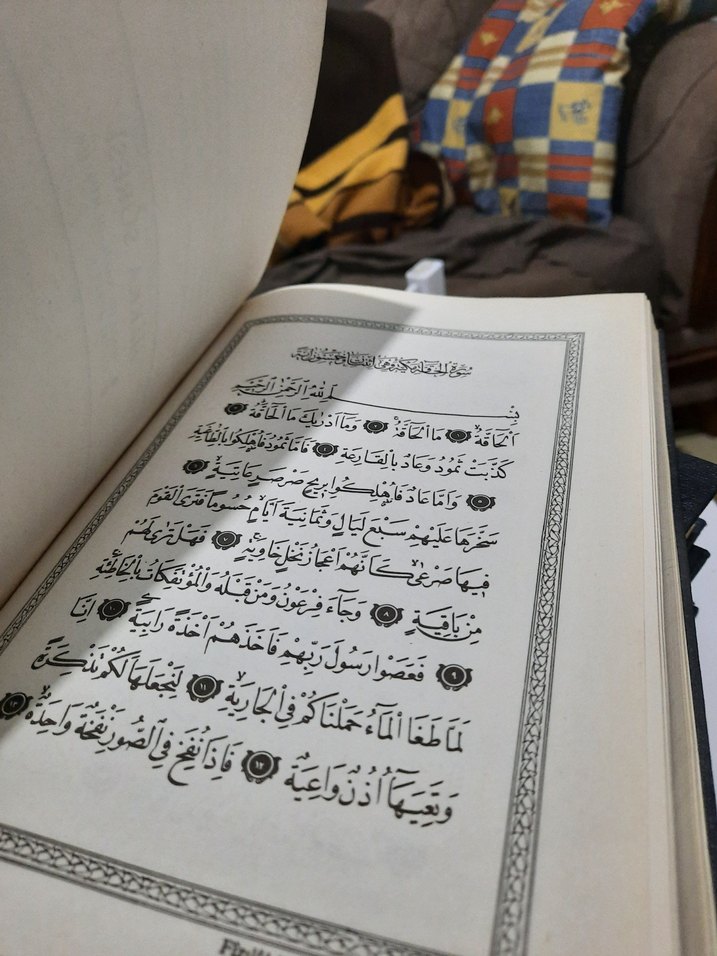 سُورَةُ الْحَاقَّةِ مَكِّيَّةٌ وَهِيَ اثْنَتَانِ وَخَمْسُونَ اٰيَةً
بِسْمِ اللّٰهِ الرَّحْمٰنِ الرَّحِيمِ
اَلْحَاقَّةُۙ ١ مَا الْحَاقَّةُۚ ٢ وَمَٓا اَدْرٰيكَ مَا الْحَاقَّةُۜ ٣
كَذَّبَتْ ثَمُودُ وَعَادٌ بِالْقَارِعَةِ ٤ فَاَمَّا ثَمُودُ فَاُهْلِكُوا بِالطَّاغِيَةِ
٥ وَاَمَّا عَادٌ فَاُهْلِكُوا بِرِيحٍ صَرْصَرٍ عَاتِيَةٍۙ ٦
سَخَّرَهَا عَلَيْهِمْ سَبْعَ لَيَالٍ وَثَمَانِيَةَ اَيَّامٍۙ حُسُومًا فَتَرَى الْقَوْمَ
فِيهَا صَرْعٰىۙ كَاَنَّهُمْ اَعْجَازُ نَخْلٍ خَاوِيَةٍۚ ٧ فَهَلْ تَرٰى لَهُمْ
مِنْ بَاقِيَةٍ ٨ وَجَٓاءَ فِرْعَوْنُ وَمَنْ قَبْلَهُ وَالْمُؤْتَفِكَاتُ بِالْخَاطِئَةِۚ
٩ فَعَصَوْا رَسُولَ رَبِّهِمْ فَاَخَذَهُمْ اَخْذَةً رَابِيَةً ١٠ اِنَّا
لَمَّا طَغَا الْمَٓاءُ حَمَلْنَاكُمْ فِي الْجَارِيَةِۙ ١١ لِنَجْعَلَهَا لَكُمْ تَذْكِرَةً
وَتَعِيَهَٓا اُذُنٌ وَاعِيَةٌ ١٢ فَاِذَا نُفِخَ فِي الصُّورِ نَفْخَةٌ وَاحِدَةٌۙ ١٣